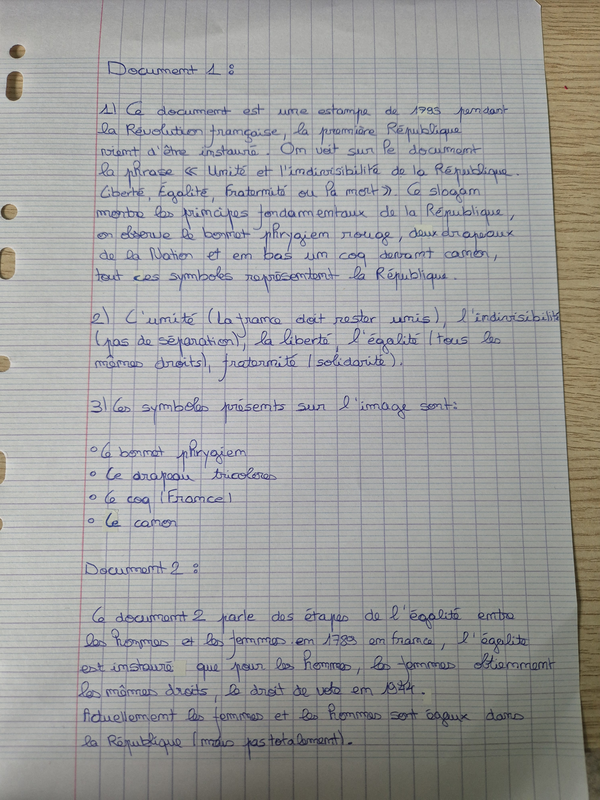 Document 1 :
1) Ce document est une estampe de 1793 pendant
la Révolution française, la première République
vient d'être instauré. On voit sur le document
la phrase « Unité et l'indivisibilité de la République.
Liberté, Égalité, Fraternité ou la mort ». Ce slogan
montre les principes fondamentaux de la République,
on observe le bonnet phrygien rouge, deux drapeaux
de la Nation et en bas un coq devant canon,
tout ces symboles représentent la République.
2) L'unité (la france doit rester unis), l'indivisibilité
(pas de séparation), la liberté, l'égalité (tous les
mêmes droits), fraternité (solidarité).
3) Les symboles présents sur l'image sont:
° Le bonnet phrygien
° Le drapeau tricolores
° Le coq (France)
° Le canon
Document 2 :
Ce document 2 parle des étapes de l'égalité entre
les hommes et les femmes. en 1789 en france, l'égalite
est instauré que pour les hommes, les femmes obtiennent
les mêmes droits, le droit de vote en 1944.
Actuellement les femmes et les hommes sont égaux dans
la République (mais pas totalement).